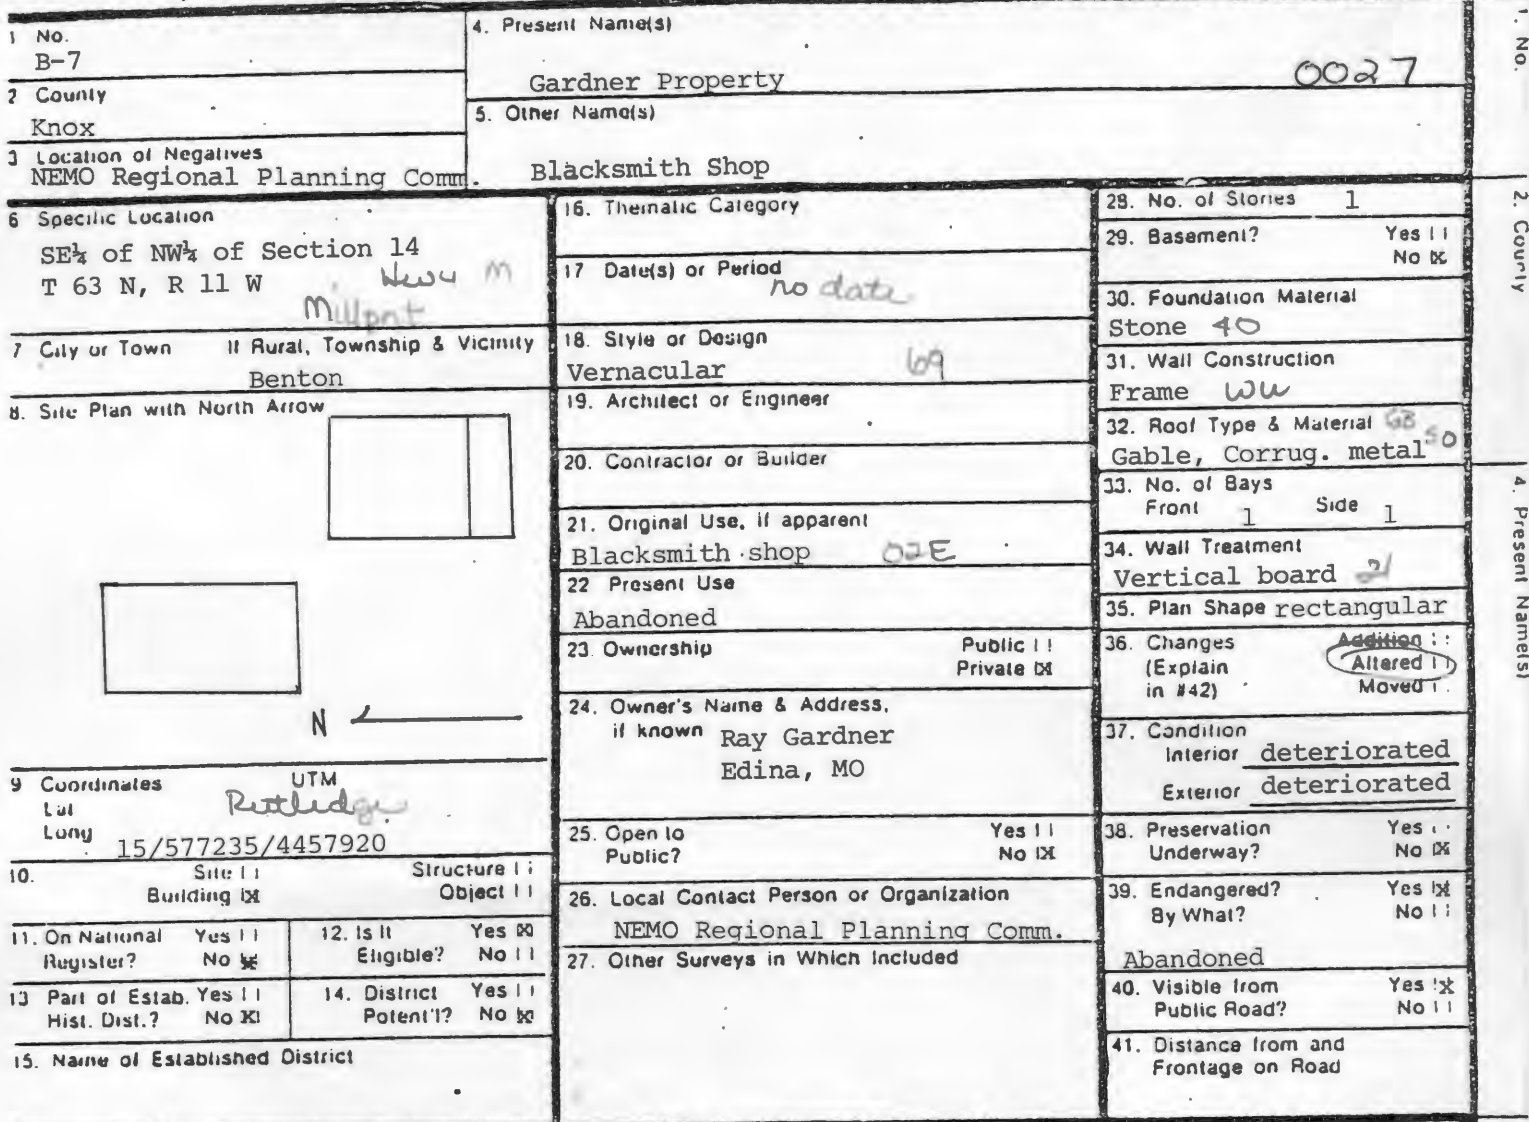 1 No.
B-7
2 County
Knox
3 Location of Negatives
NEMO Regional Planning Comm.
4. Present Name(s)
Gardner Property
0027
5. Other Name(s)
Blacksmith Shop
6 Specific Location
SE¼ of NW¼ of Section 14
T 63 N, R 11 W
M
Millport
7 City or Town If Rural, Township & Vicinity
Benton
8. Site Plan with North Arrow
N
9 Coordinates UTM
Lat
Rutledge
Long
15/577235/4457920
10. Site [ ] Structure [ ]
Building [X] Object [ ]
11. On National Register? Yes [ ] No [X]
12. Is It Eligible? Yes [X] No [ ]
13 Part of Estab. Hist. Dist.? Yes [ ] No [X]
14. District Potent'l? Yes [ ] No [X]
15. Name of Established District
16. Thematic Category
17 Date(s) or Period
no date
18. Style or Design
Vernacular 69
19. Architect or Engineer
20. Contractor or Builder
21. Original Use, if apparent
Blacksmith shop 02E
22 Present Use
Abandoned
23. Ownership Public [ ]
Private [X]
24. Owner's Name & Address,
if known Ray Gardner
Edina, MO
25. Open to Yes [ ]
Public? No [X]
26. Local Contact Person or Organization
NEMO Regional Planning Comm.
27. Other Surveys in Which Included
28. No. of Stories 1
29. Basement? Yes [ ]
No [X]
30. Foundation Material
Stone 40
31. Wall Construction
Frame WW
32. Roof Type & Material GB
Gable, Corrug. metal 50
33. No. of Bays
Front 1 Side 1
34. Wall Treatment
Vertical board 21
35. Plan Shape rectangular
36. Changes Addition [ ]
(Explain Altered [ ]
in #42) Moved [ ]
37. Condition
Interior deteriorated
Exterior deteriorated
38. Preservation Yes [ ]
Underway? No [X]
39. Endangered? Yes [X]
By What? No [ ]
Abandoned
40. Visible from Yes [X]
Public Road? No [ ]
41. Distance from and
Frontage on Road
1. No.
2. County
4. Present Name(s)